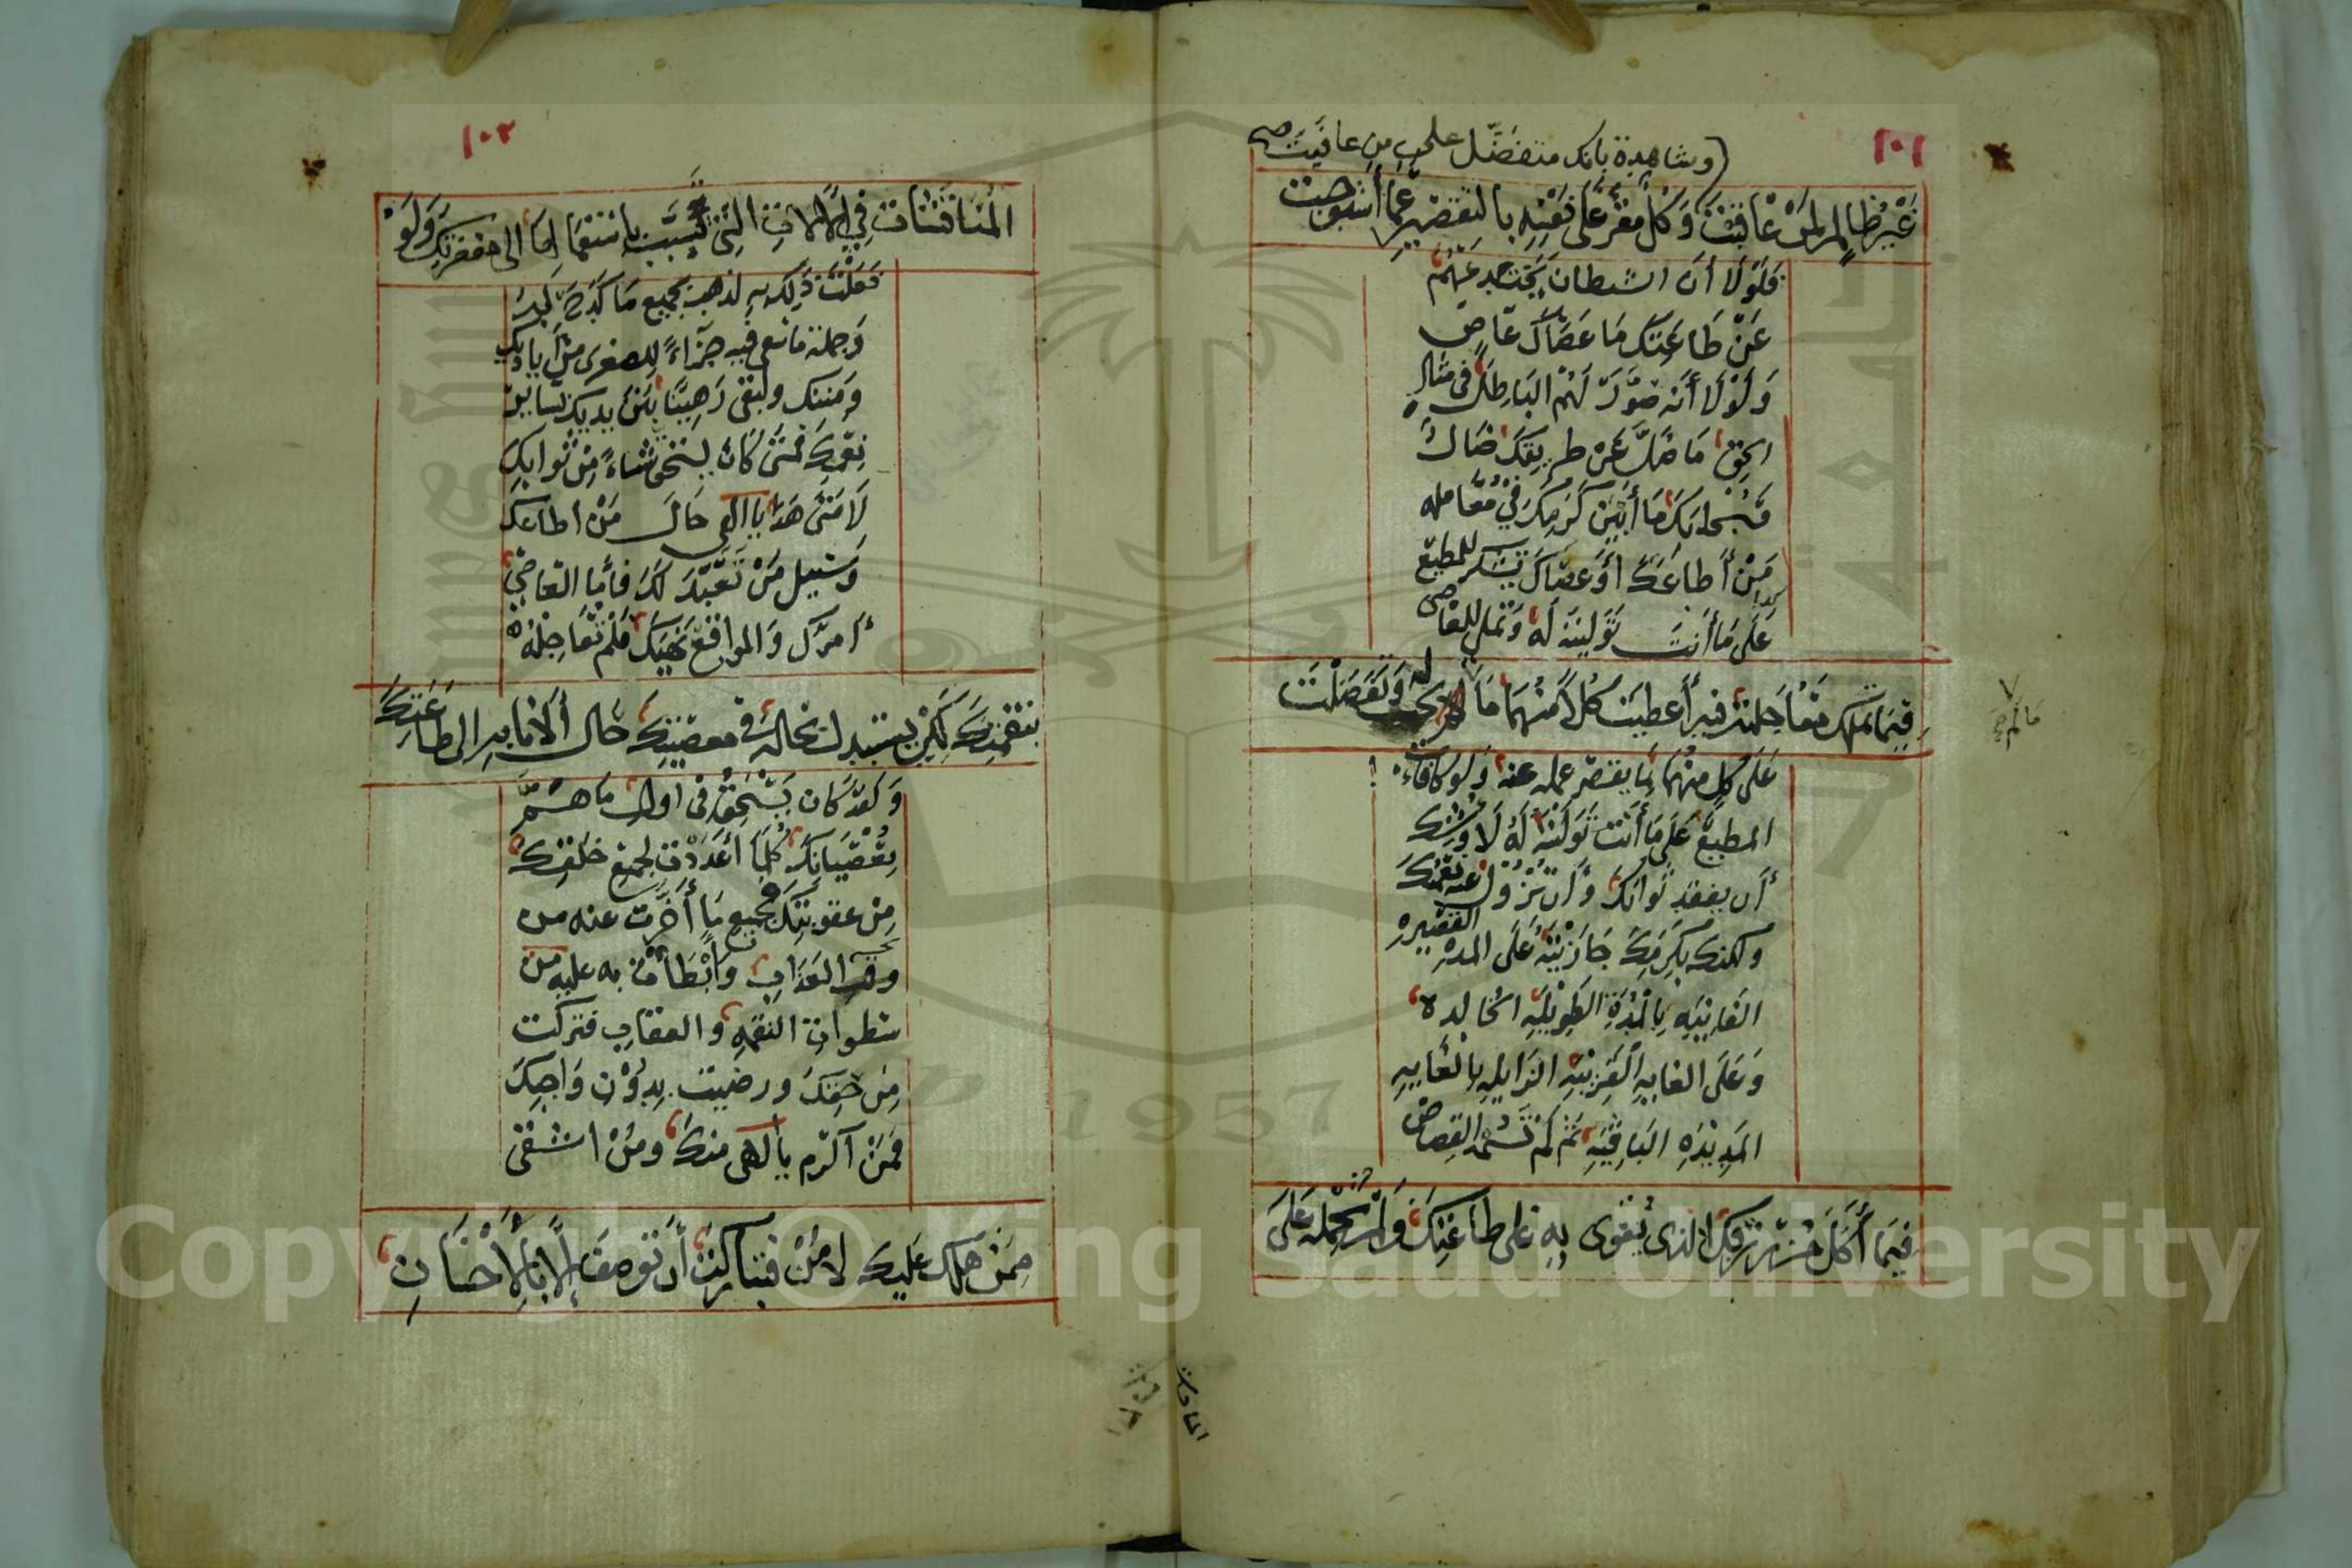 ١٠١
وشاهدة بانك متفضل على من عافيت صح
غَيْرُ ظَالِمٍ لِمَنْ عَاقَبْتَ وَكُلٌّ مُقِرٌّ عَلَى نَفْسِهِ بالتقصير عَمَّا استوجبت
فَلَوْلَا أَنَّ الشيطان يَخْتَدِعُهُمْ
عَنْ طَاعَتِكَ مَا عَصَاكَ عَاصٍ
وَلَوْلَا أَنَّه صَوَّرَ لَهُمْ البَاطِلَ فى مثال
الحق مَا ضَلَّ عَنْ طريقِكَ ضَالٌّ
فَسُبْحَانَكَ مَا أَبْيَنَ كَرَمَكَ فِي مُعَامله
مَنْ أَطَاعَكَ أَوْ عَصَاكَ تشكر للمطيع
عَلَى مَا أنتَ تَوَلَّيْتَهُ لَهُ وَتُملى للعاصى
فِيمَا تملك مُعَاجلته فيه أَعطيت كُلًّا مِنْهُمَا مَا لم يجب له وَتَفَضَّلْتَ
عَلَى كلٍ مِنْهُمَا بِمَا يقصر عمله عنه وَلو كافأت
المطيعَ عَلَى مَا أَنْتَ تَوَلَّيْتَهُ لَهُ لَاوشك
أَن يفقد ثوابك وَأَن تَزُولَ عنه نعمتك
ولكنك بِكَرَمِكَ جَازَيْتَهُ عَلَى المدة القصيره
الفَانِيَه بِالْمُدَّةِ الطَوِيْلَه الخَالِده
وَعَلَى الغايه الْقَرِيبَه الزَايله بالغَايه
المَدِيْدَهِ البَاقِيَهِ ثم لم تَسُمْهُ القِصَاصَ
فِيمَا أَكَلَ مِنْ رزقك الذى يُقْوى بِهِ عَلى طاعتِكَ وَلَمْ تَحْمِله عَلَى
المناقشات
١٠٢
المُنَاقَشَات فِي الْآلَاتِ الَّتِي تَسَبَّبَ باستعمالِهَا الى مغفرتك وَلَوْ
فَعَلْتَ ذَلِكَ بِهِ لذهب بجميع مَا كَدَحَ لَهُ
وَجملة مَا سعى فيه جَزَاءً لِلصغرى مِنْ أياديك
وَمننك ولبقى رَهِينًا بَيْنَ يديك بسائر
نِعَمِكَ فَمَتَى كَانَ يستحق شيئاً مِنْ ثوابِكَ
لَا مَتَى هَذَا يا الهى حَالُ مَنْ اطاعك
وَسبيل مَنْ تَعَبَّدَ لَكَ فأمّا العَاصِي
أمرَكَ وَالمواقعُ نَهْيَكَ فَلَمْ تُعَاجِلْهُ
بنقمتِكَ لِكَيْ يستبدل بحاله فى معصيتِكَ حَال الانابه الى طَاعَتِكَ
وَلَقَدْ كَان يَسْتَحِقُّ فى اول مَا هَمَّ
بِعِصْيَانِكَ كُلَّمَا أعْدَدْتَ لجميع خلقِكَ
مِن عقوبتِكَ فجميع مَا أَخَّرْتَ عنه من
وقت العَذَاب وَأَبْطَأْتَ به عليه من
سطوات النقمه والعقاب فتركت
مِن حقك ورضيت بِدُوْنِ وَاجبِكَ
فَمَنْ اكرم يا الهى منك ومَنْ اشقى
مِمَّنْ هلك عَليك لا مَنْ فتباركت أَن توصف إلا بالإحسَانِ